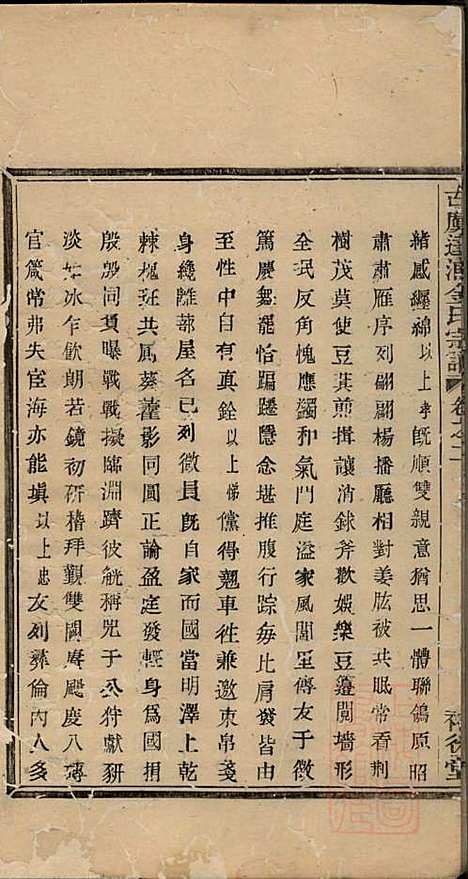 緒感纏綿以上孝旣順雙親意猶思一體聯鴒原昭
肅肅雁序列翩翩楊播廳相對姜肱被共眠常看荆
樹茂莫使豆萁煎揖讓消銶斧歡娛樂豆籩鬩墻形
全泯反角愧應蠲和氣門庭溢家風閭里傳友于徵
篤慶郵罷恰蹁躚隱念堪推腹行踪每比肩發皆由
至性中自有真銓以上悌儻得翹車徃兼邀束帛箋
身纔離蔀屋名已列微員旣自家而國當明澤上乾
棘槐廷共鳳葵藿影同圓正論盈庭發輕身爲國捐
殷殷同負曝戰戰擬臨淵躋彼觥稱兕于公狩獻豜
淡如氷乍飲朗若鏡初硏稽拜覲雙闕賡颺度八磚
官箴常弗失宦海亦能塡以上忠友列彝倫內人多
金氏宗譜
卷之二
裕後堂